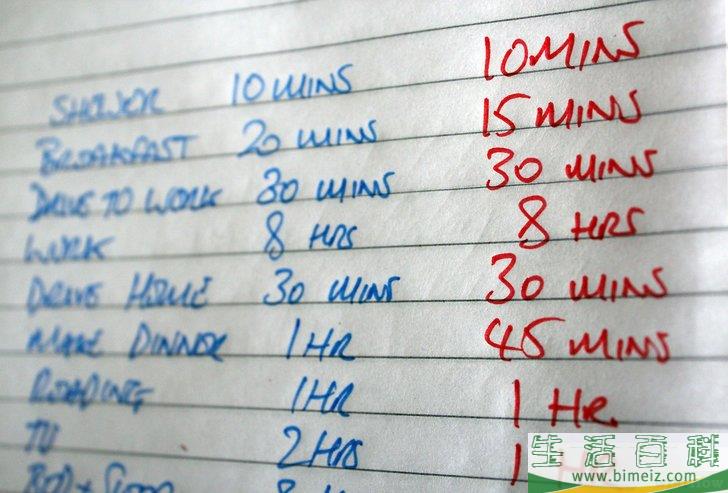 SHOWER 10 MINS 10 MINS
BREAKFAST 20 MINS 15 MINS
DRIVE TO WORK 30 MINS 30 MINS
WORK 8 HRS 8 HRS
DRIVE HOME 30 MINS 30 MINS
MAKE DINNER 1 HR 45 MINS
READING 1 HR 1 HR
TV 2 HRS 1
生活百科
www.bimeiz.com